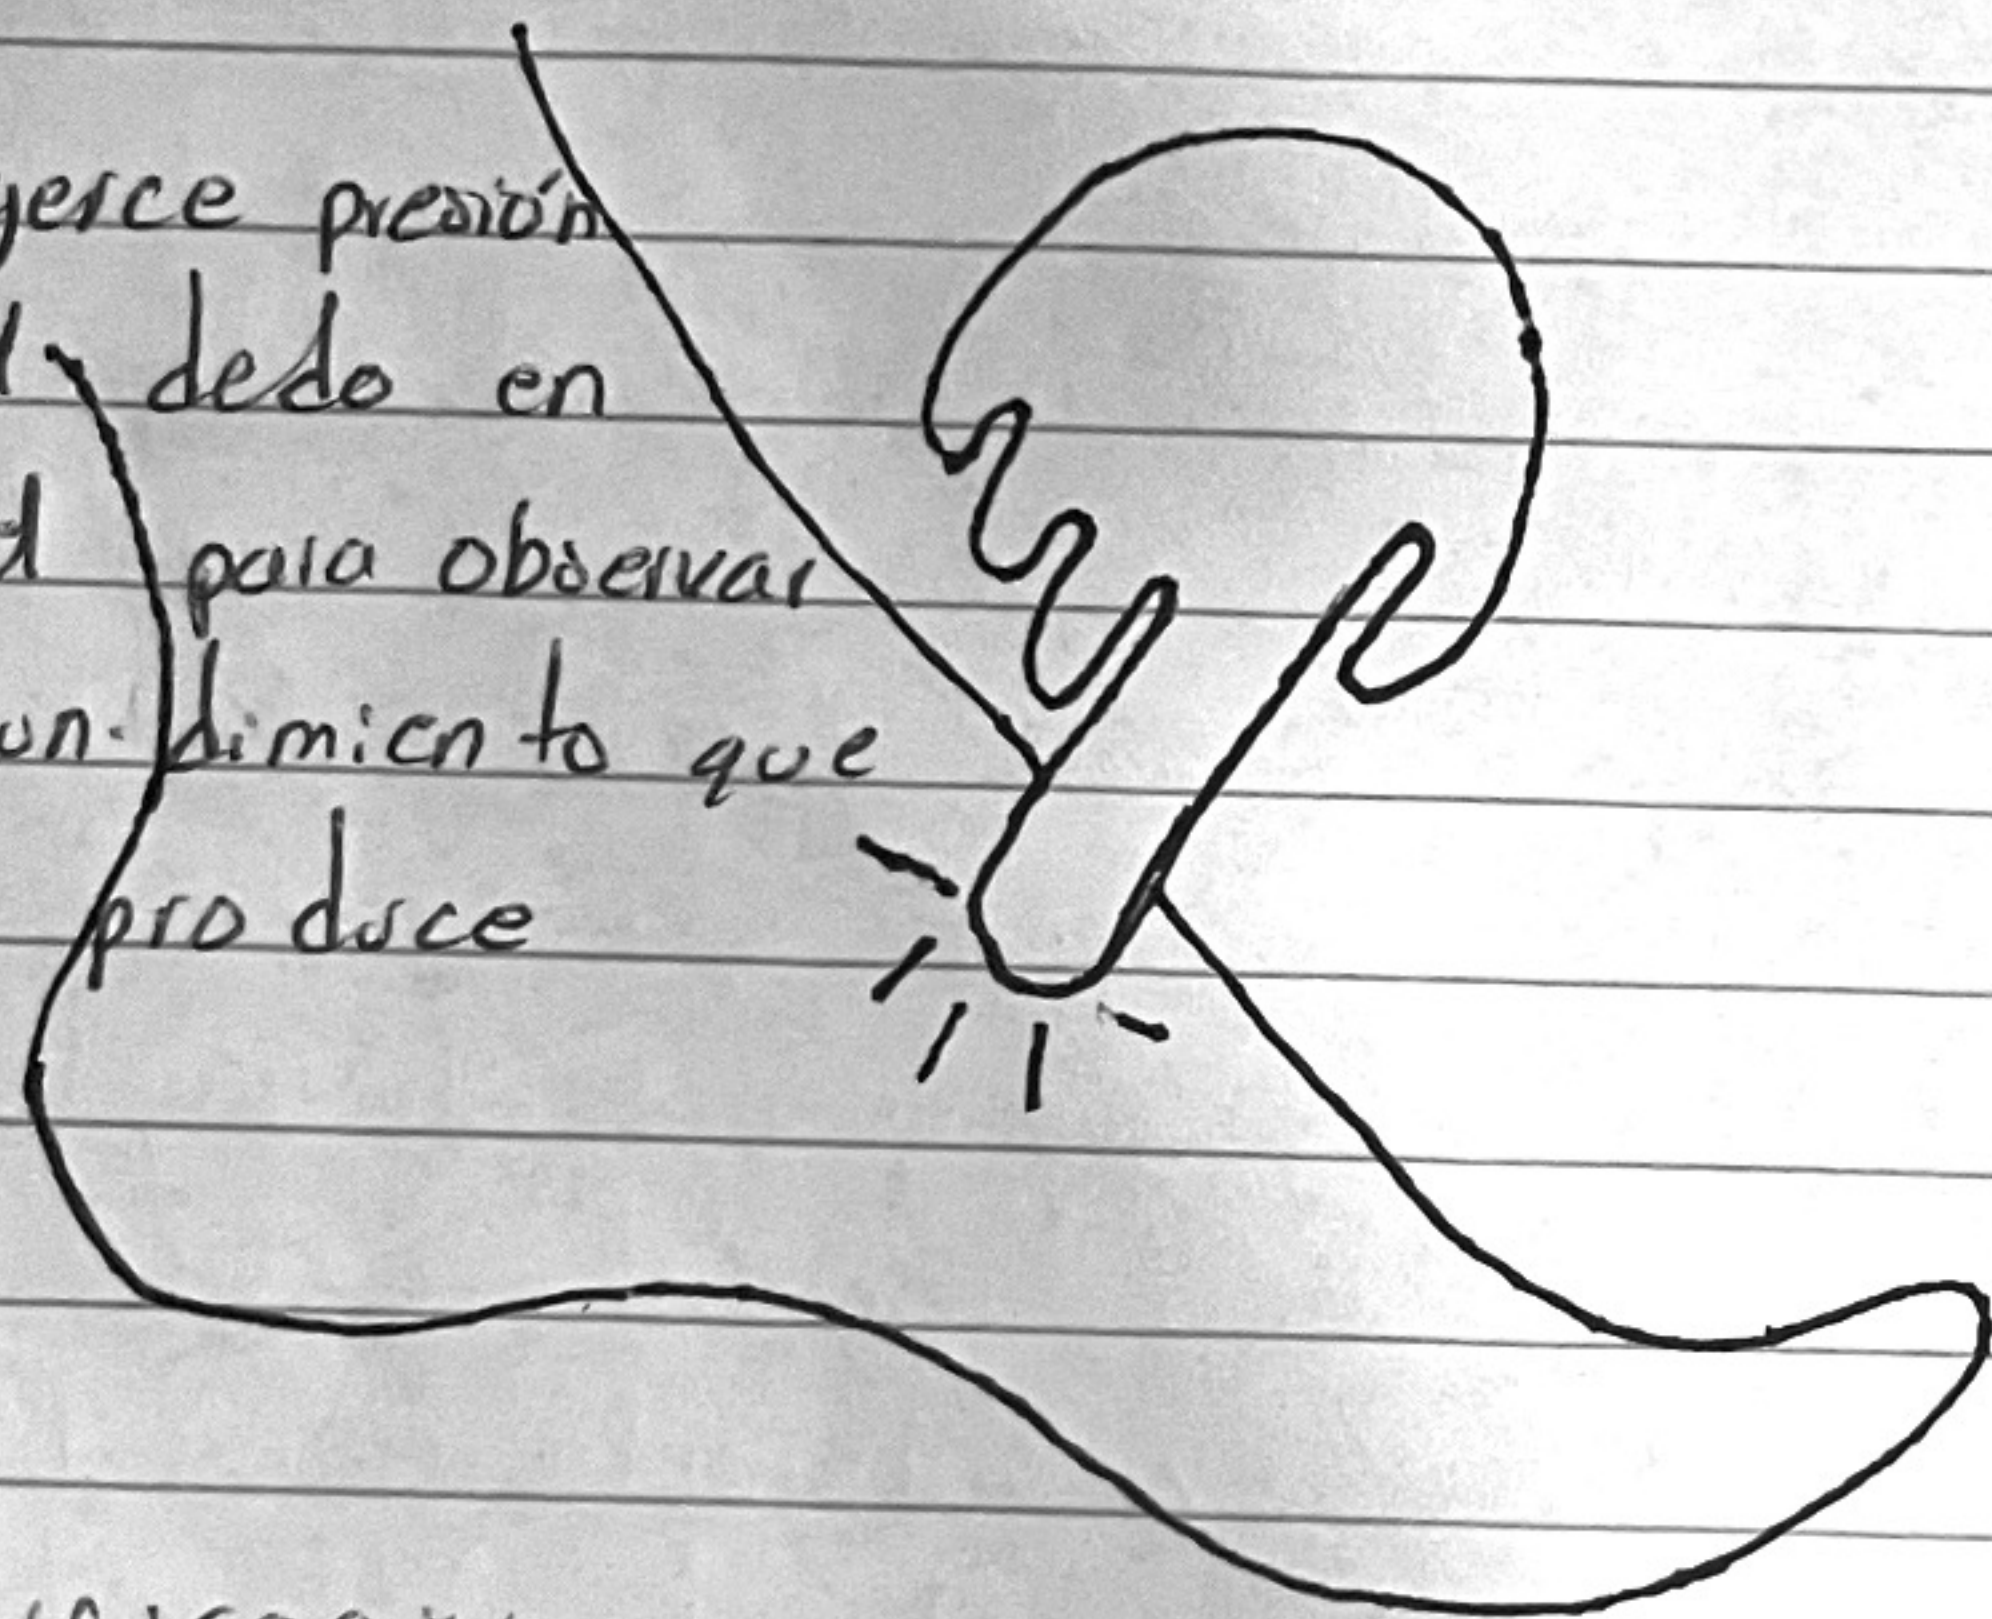 yerce presión
l dedo en
d para observar
un. dimiento que
produce